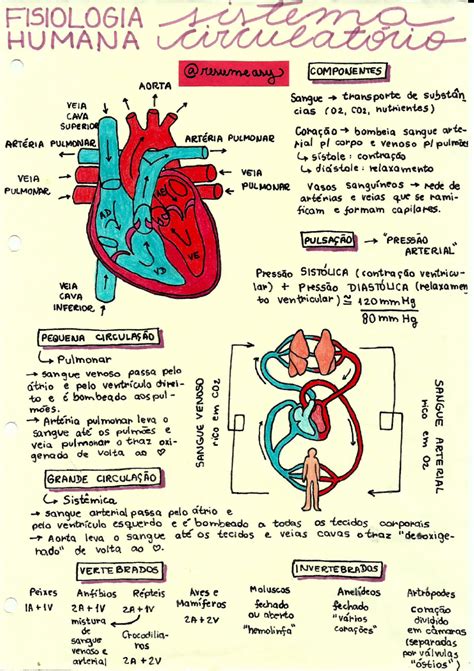 FISIOLOGIA
HUMANA
sistema
circulatório
@resumeasy
AORTA
VEIA
CAVA
SUPERIOR
ARTÉRIA PULMONAR
ARTÉRIA PULMONAR
VEIA
PULMONAR
VEIA
PULMONAR
AD
AE
VD
VE
VEIA
CAVA
INFERIOR
COMPONENTES
Sangue → transporte de substân
cias (O2, CO2, nutrientes)
Coração → bombeia sangue arte-
rial p/ corpo e venoso p/ pulmões
↳ sístole: contração
↳ diástole: relaxamento
Vasos sanguíneos → rede de
artérias e veias que se rami-
ficam e formam capilares.
PULSAÇÃO → "PRESSÃO
ARTERIAL"
Pressão SISTÓLICA (contração ventricu-
lar) + Pressão DIASTÓLICA (relaxamen
to ventricular) ≅ 120 mm Hg
80 mm Hg
PEQUENA CIRCULAÇÃO
↳ Pulmonar
→ sangue venoso passa pelo
átrio e pelo ventrículo direi-
to e é bombeado aos pul-
mões.
→ Artéria pulmonar leva o
sangue até os pulmões e
veia pulmonar o traz oxi-
genado de volta ao ♡
SANGUE VENOSO
rico em CO2
SANGUE ARTERIAL
rico em O2
GRANDE CIRCULAÇÃO
↳ Sistêmica
→ sangue arterial passa pelo átrio e
pelo ventrículo esquerdo e é bombeado a todas os tecidos corporais
→ Aorta leva o sangue até os tecidos e veias cavas o traz "desoxige-
nado" de volta ao ♡
VERTEBRADOS
Peixes
1A + 1V
Anfíbios
2A + 1V
mistura
de
sangue
venoso e
arterial
Répteis
2A + 1V
Crocodilia-
nos
2A + 2V
Aves e
Mamíferos
2A + 2V
INVERTEBRADOS
Moluscos
fechado
ou aberto
"hemolinfa"
Anelídeos
fechado
"vários
corações"
Artrópodes
coração
dividido
em câmaras
(separadas
por válvulas
"óstios")